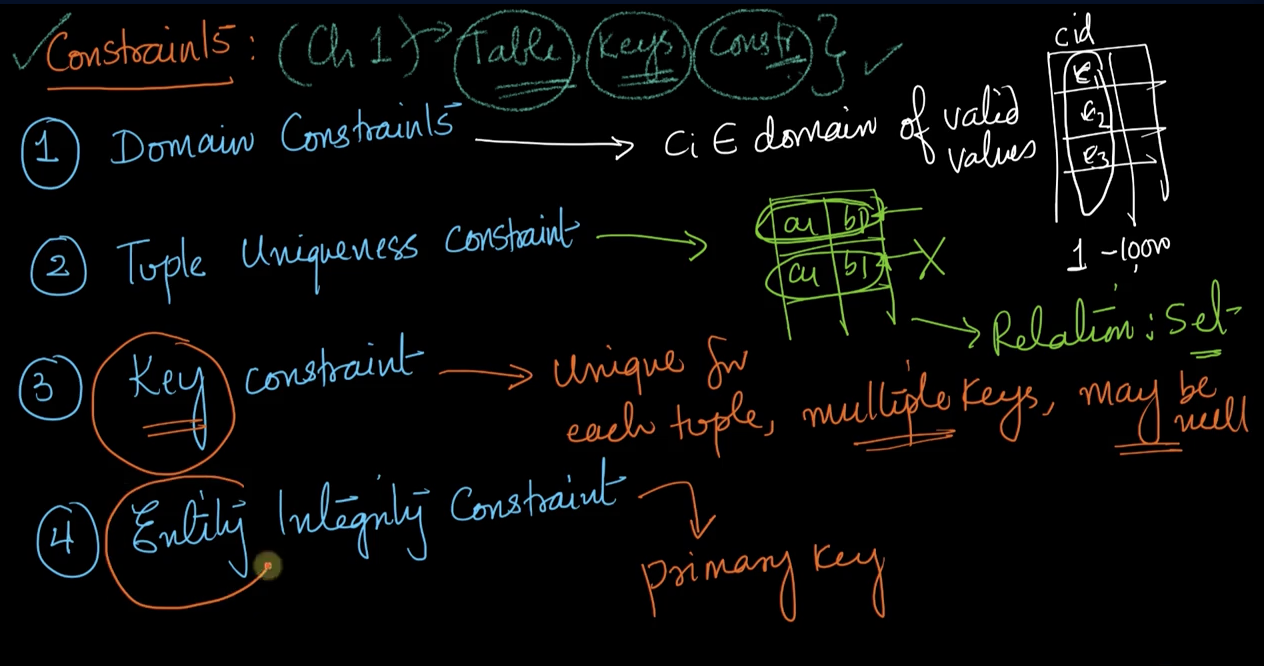 Constraints : (Ch 1) → Table, Keys, Constr. }
① Domain Constraints → Ci ∈ domain of valid values
cid
c1
c2
c3
1 - 1000
② Tuple Uniqueness Constraint →
a1 b1
a1 b1 X
→ Relation : Set
③ Key constraint → Unique for
each tuple, multiple keys, may be null
④ Entity Integrity Constraint
primary key